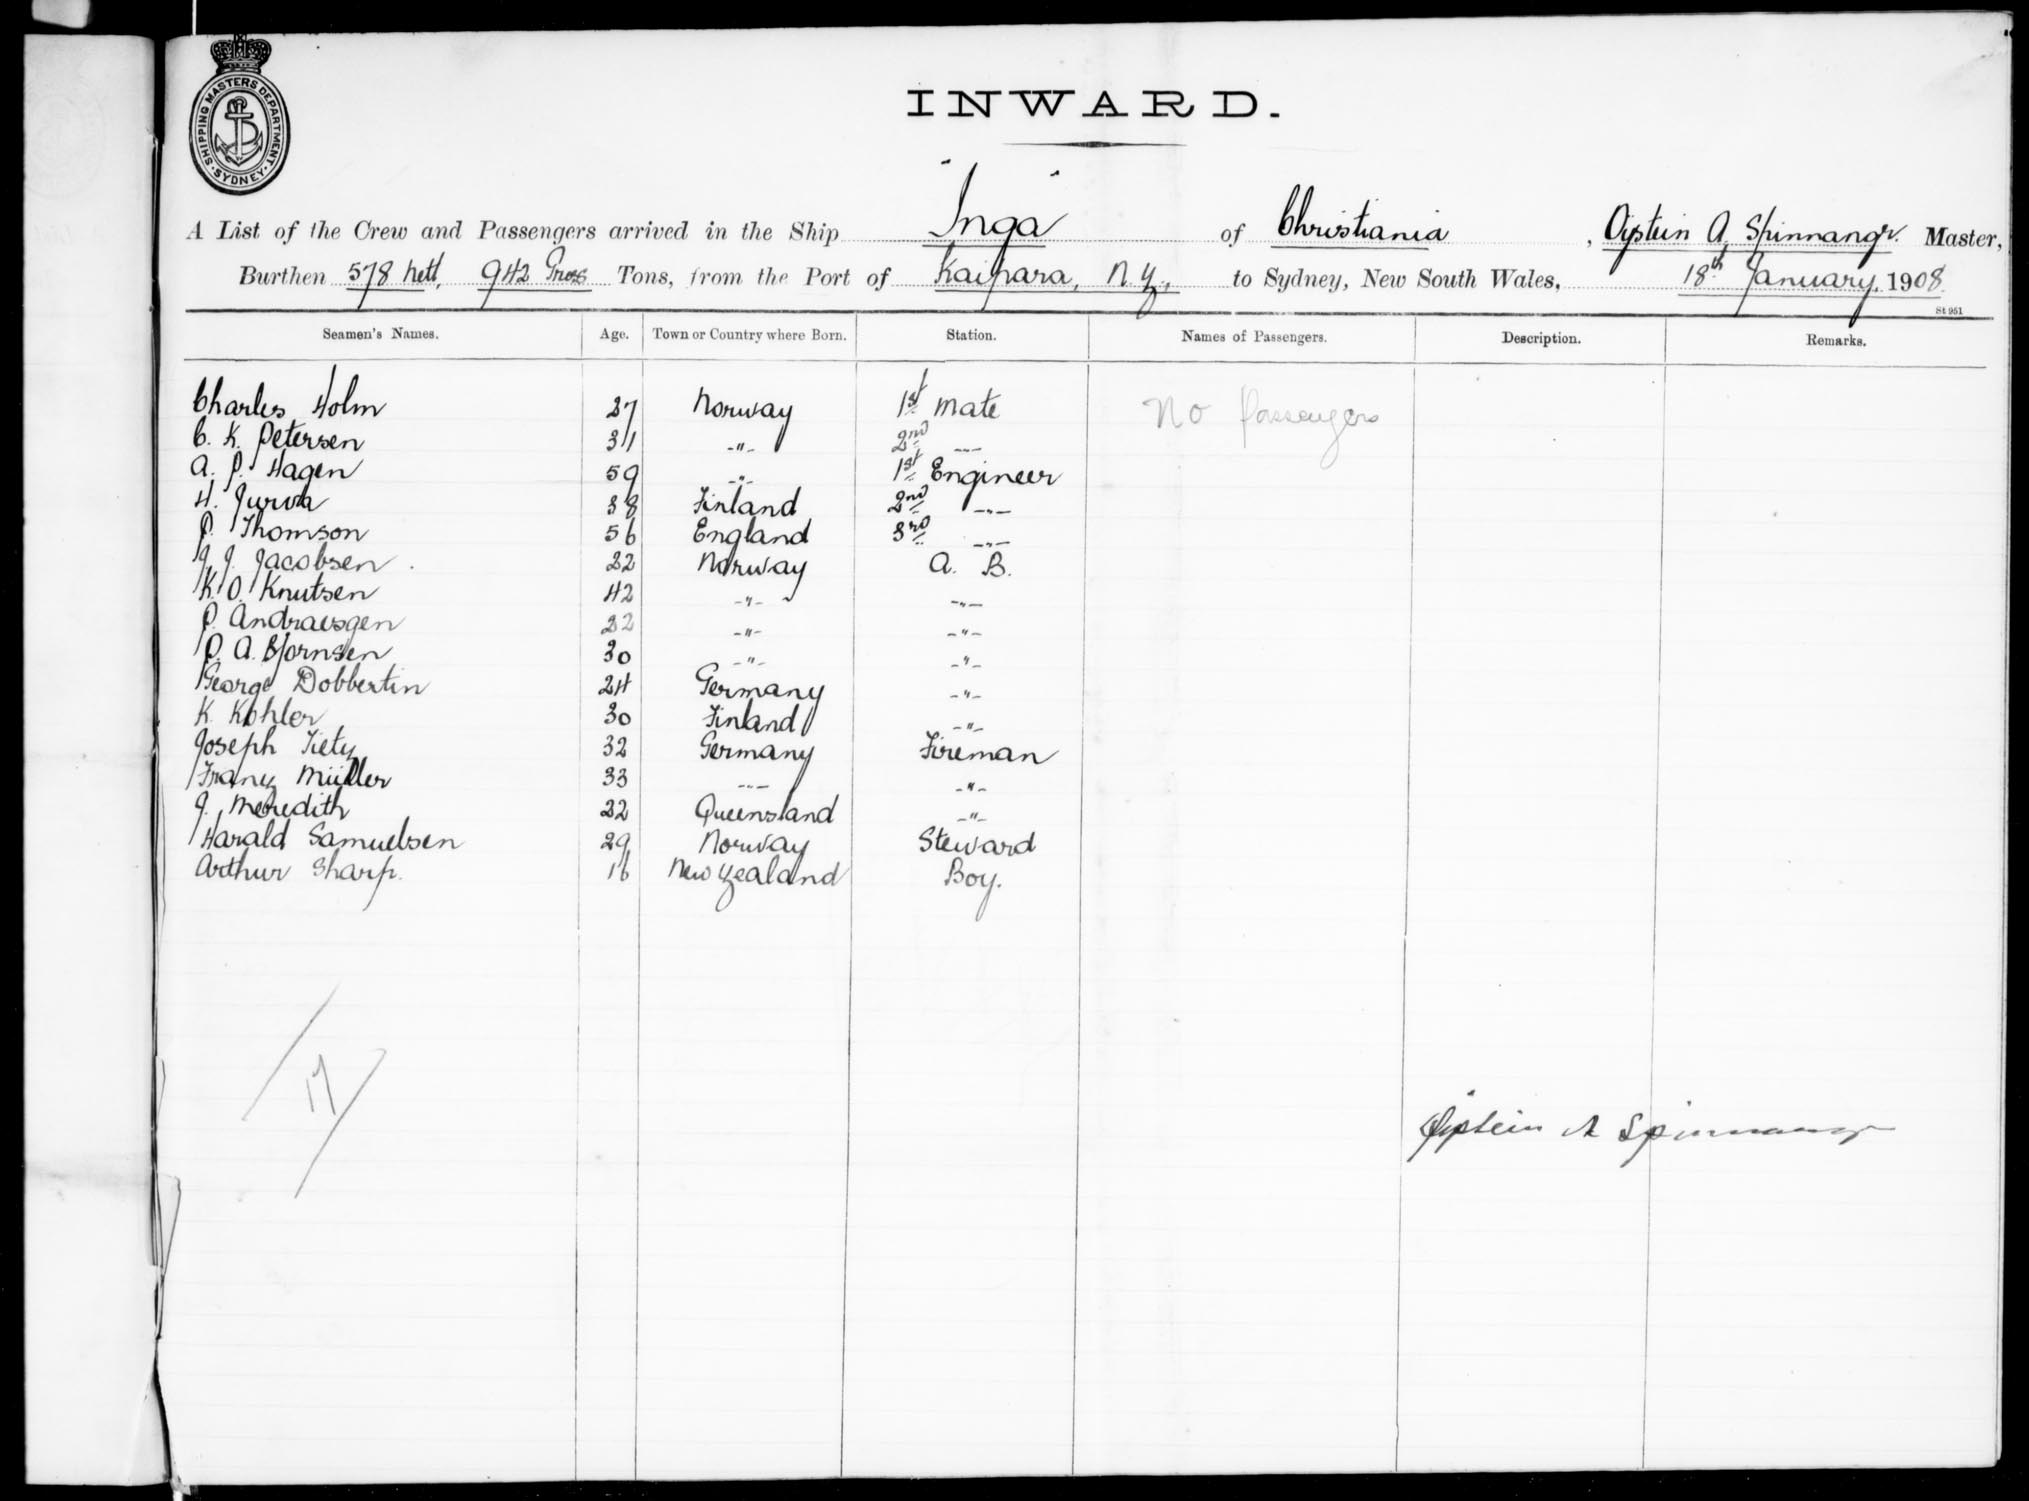 SHIPPING MASTERS DEPARTMENT. SYDNEY.
INWARD.
A List of the Crew and Passengers arrived in the Ship "Inga" of Christiania, Oystein A Spinnangr. Master,
Burthen 578 Nett, 942 Gross Tons, from the Port of Kaipara, N.Z., to Sydney, New South Wales, 18th January, 1908
St 951
Seamen's Names. Age. Town or Country where Born. Station. Names of Passengers. Description. Remarks.
Charles Holm 27 Norway 1st Mate No Passengers
C. K. Petersen 31 -"- 2nd -"-
A. P. Hagen 59 -"- 1st Engineer
H. Jurva 38 Finland 2nd -"-
P. Thomson 56 England 3rd -"-
J. J. Jacobsen. 22 Norway A. B.
K. O. Knutsen 42 -"- -"-
P. Andraesgen 22 -"- -"-
O. A. Bjornsen 30 -"- -"-
George Dobbertin 24 Germany -"-
K. Kohler 30 Finland -"-
Joseph Tietz 32 Germany Fireman
Franz Müller 33 -"- -"-
J. Meredith 22 Queensland -"-
Harald Samuelsen 29 Norway Steward
Arthur Sharp. 16 New Zealand Boy.
/17/
Oystein A Spinnangr